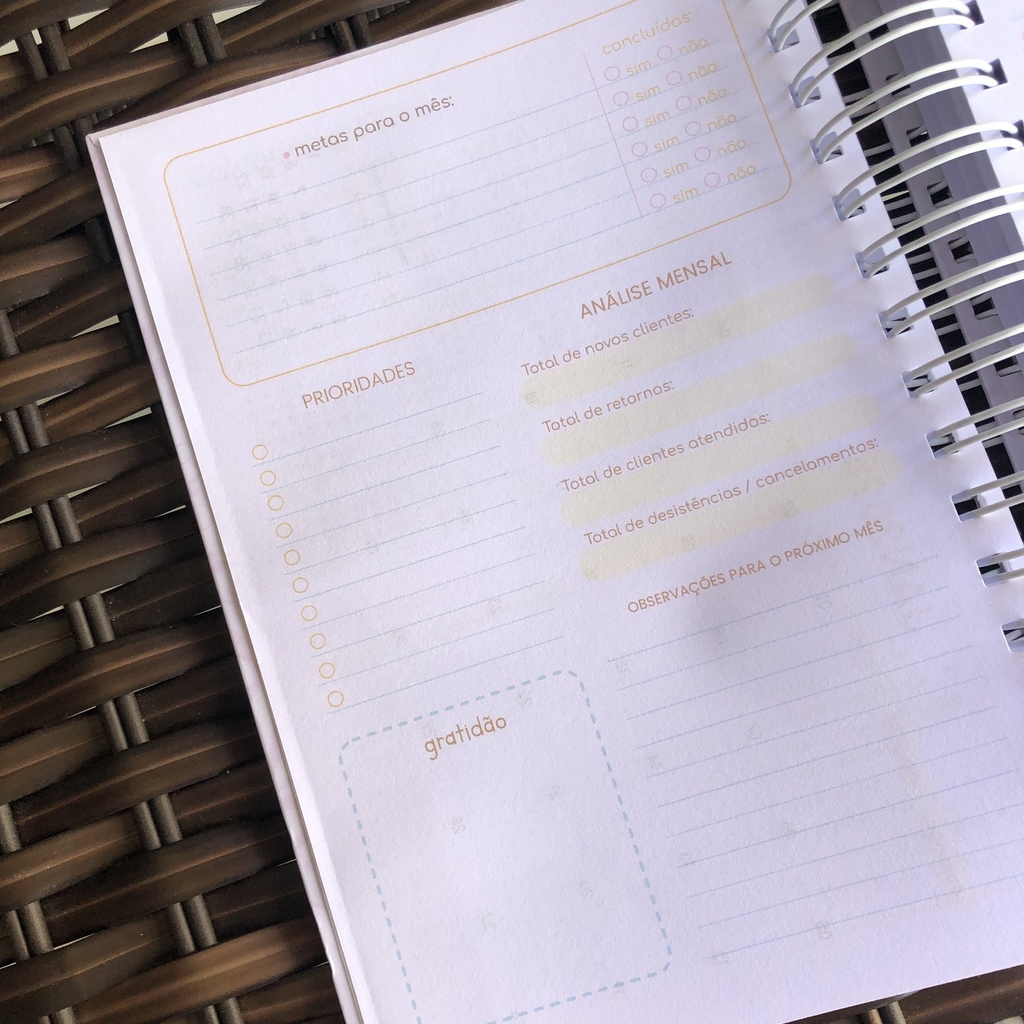 concluídos:
• metas para o mês:
sim não
sim não
sim não
sim não
sim não
sim não
ANÁLISE MENSAL
Total de novos clientes:
PRIORIDADES
Total de retornos:
Total de clientes atendidos:
Total de desistências / cancelamentos:
OBSERVAÇÕES PARA O PRÓXIMO MÊS
gratidão